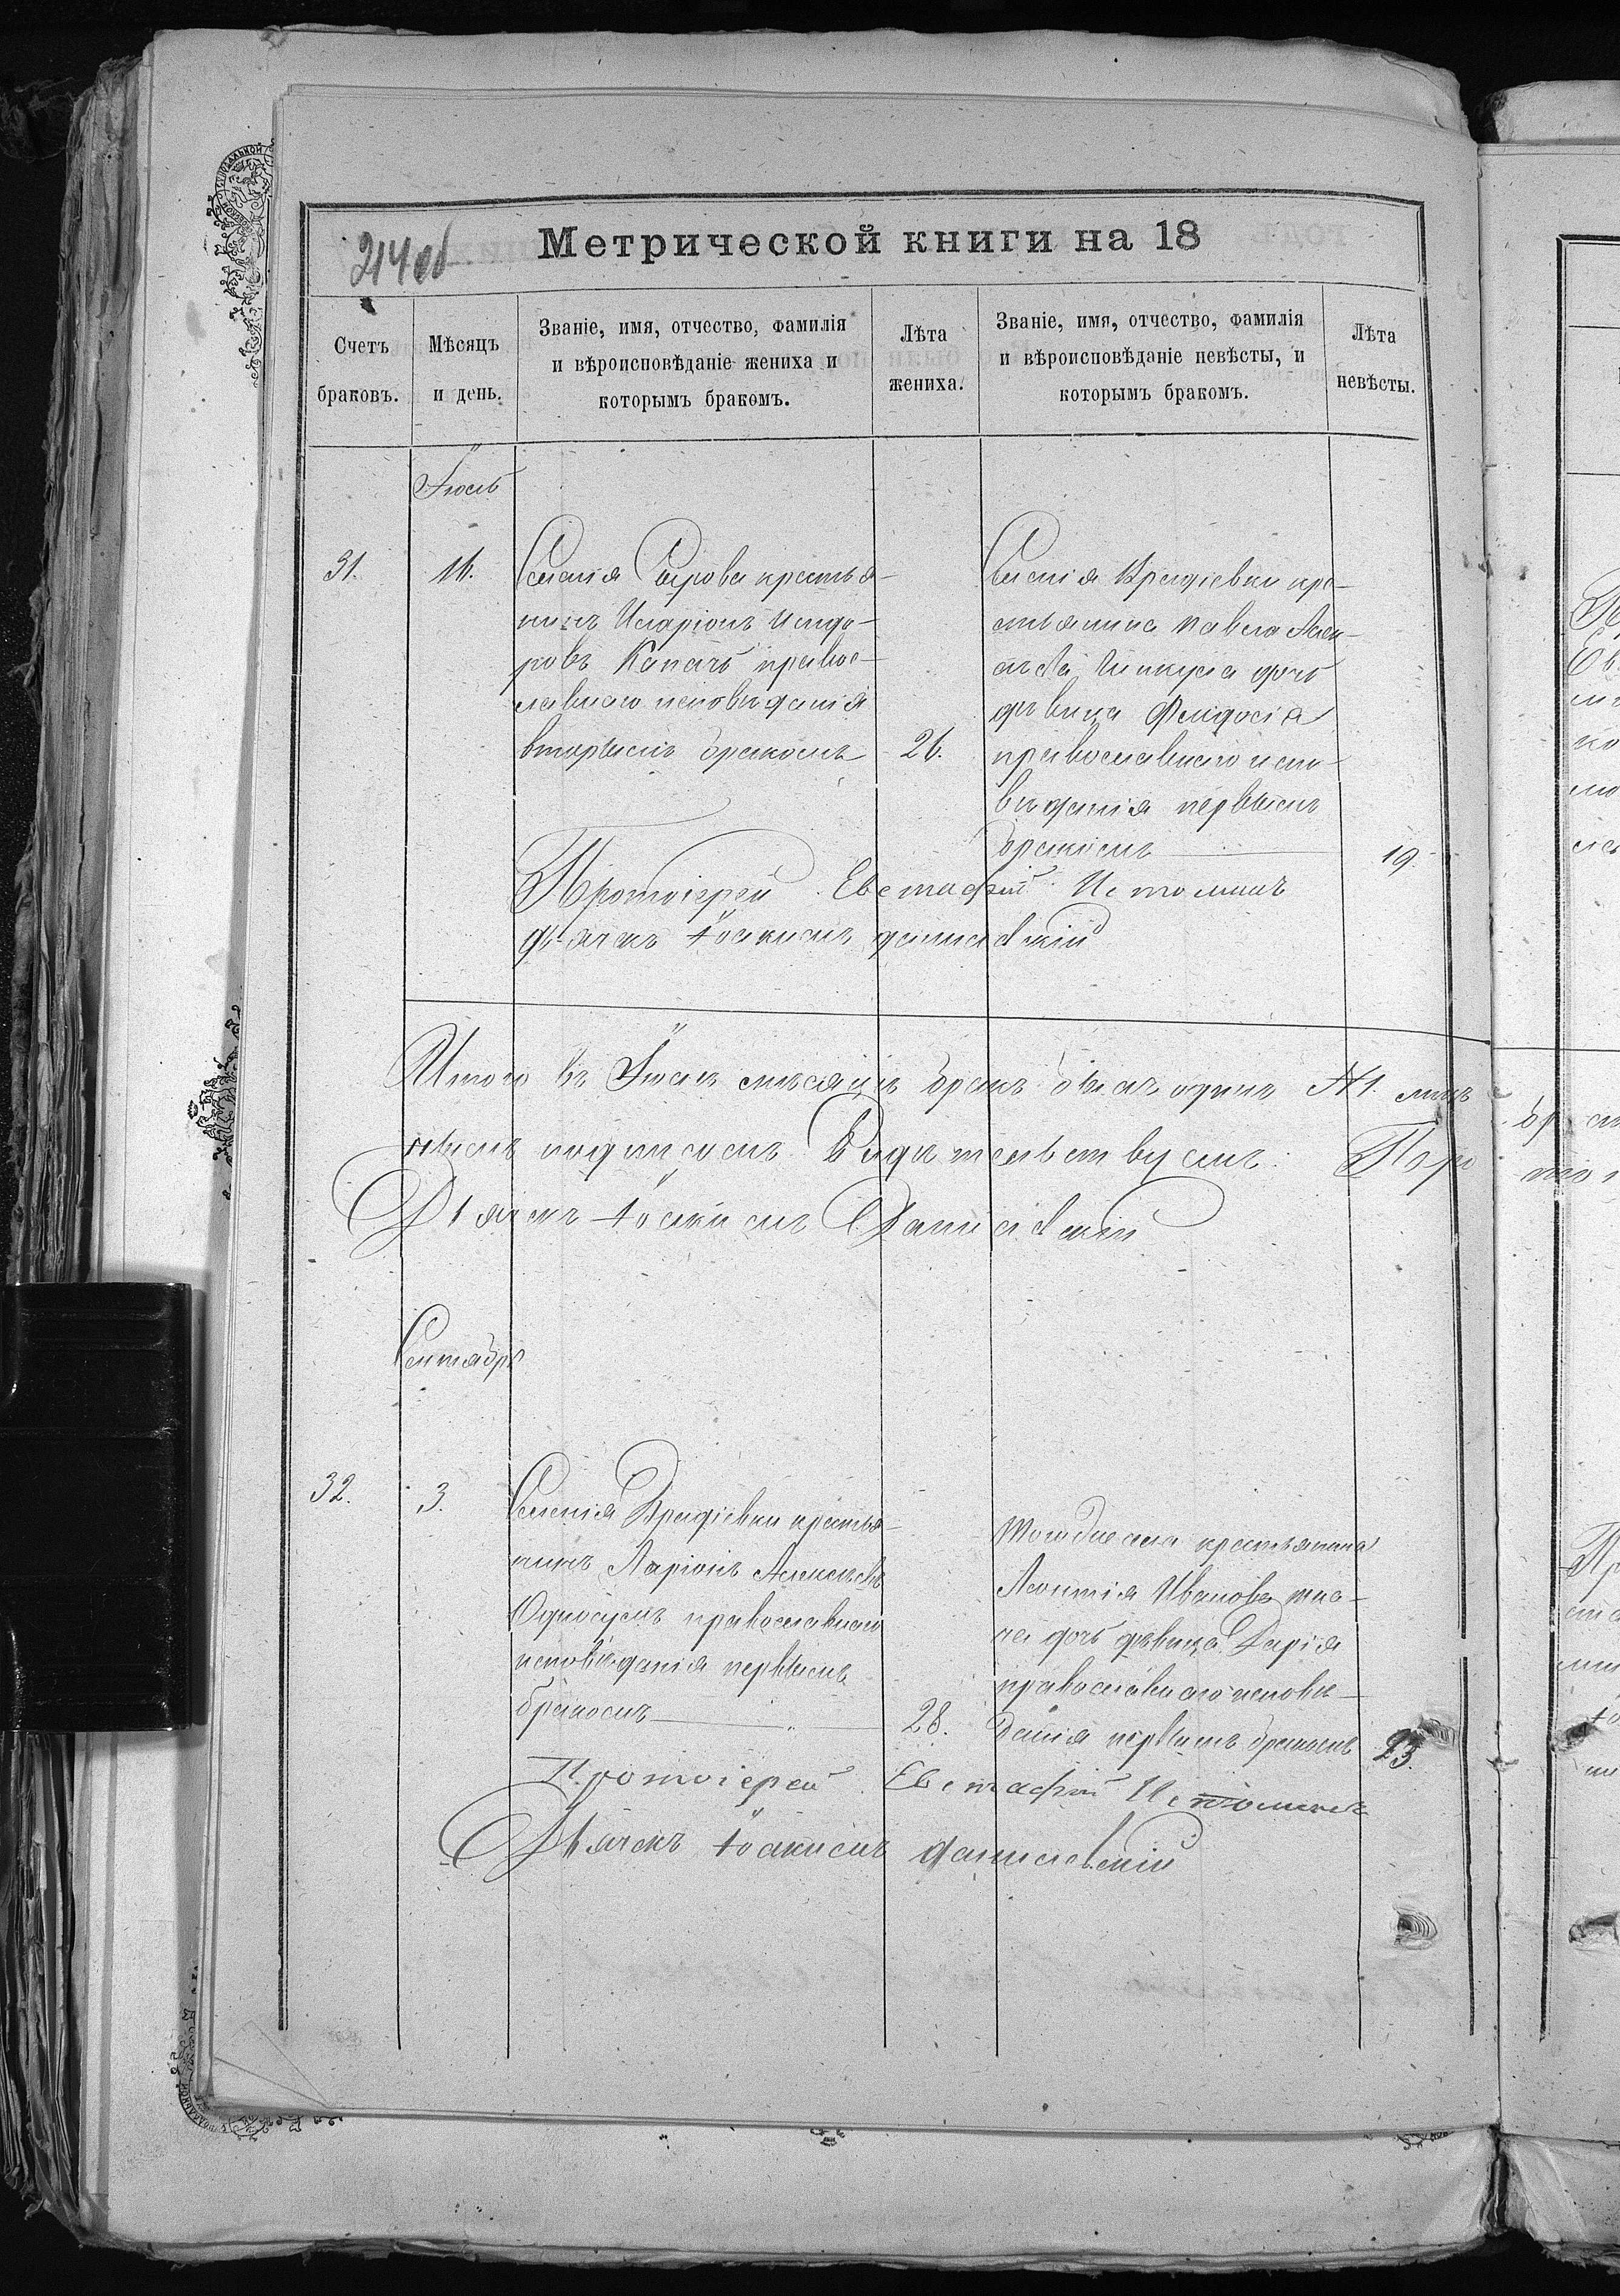 214 об
Метрической книги на 18
Счетъ
браковъ.
Мѣсяцъ
и день.
Званіе, имя, отчество, фамилія
и вѣроисповѣданіе жениха и
которымъ бракомъ.
Лѣта
жениха.
Званіе, имя, отчество, фамилія
и вѣроисповѣданіе невѣсты, и
которымъ бракомъ.
Лѣта
невѣсты.
Іюль
31.
16.
Селенія крестья-
нинъ Иларіонъ Исидо-
ровъ Капачъ правос-
лавнаго исповѣданія
вторымъ бракомъ
26.
Селенія кре-
стьянина Павла
дочь
дѣвица Феодосія
православнаго испо-
вѣданія первымъ
бракомъ
19.
Протоіерей Евстафій Истоминъ
Дьячекъ Іоакимъ Данилевскій
Итого въ Іюлѣ мѣсяцѣ бракъ былъ одинъ №1.
подписомъ Свидѣтельствуемъ:
Дьячекъ Іоакимъ Данилевскій
Сентябрь
32.
3.
Селенія крестья-
нинъ Ларіонъ Алексѣевъ
Односумъ православнаго
исповѣданія первымъ
бракомъ
28.
Того же села крестьянина
Леонтія Иванова тка-
ча дочь дѣвица Дарія
православнаго исповѣ-
данія первымъ бракомъ
23.
Протоіерей Евстафій Истоминъ
Дьячекъ Іоакимъ Данилевскій